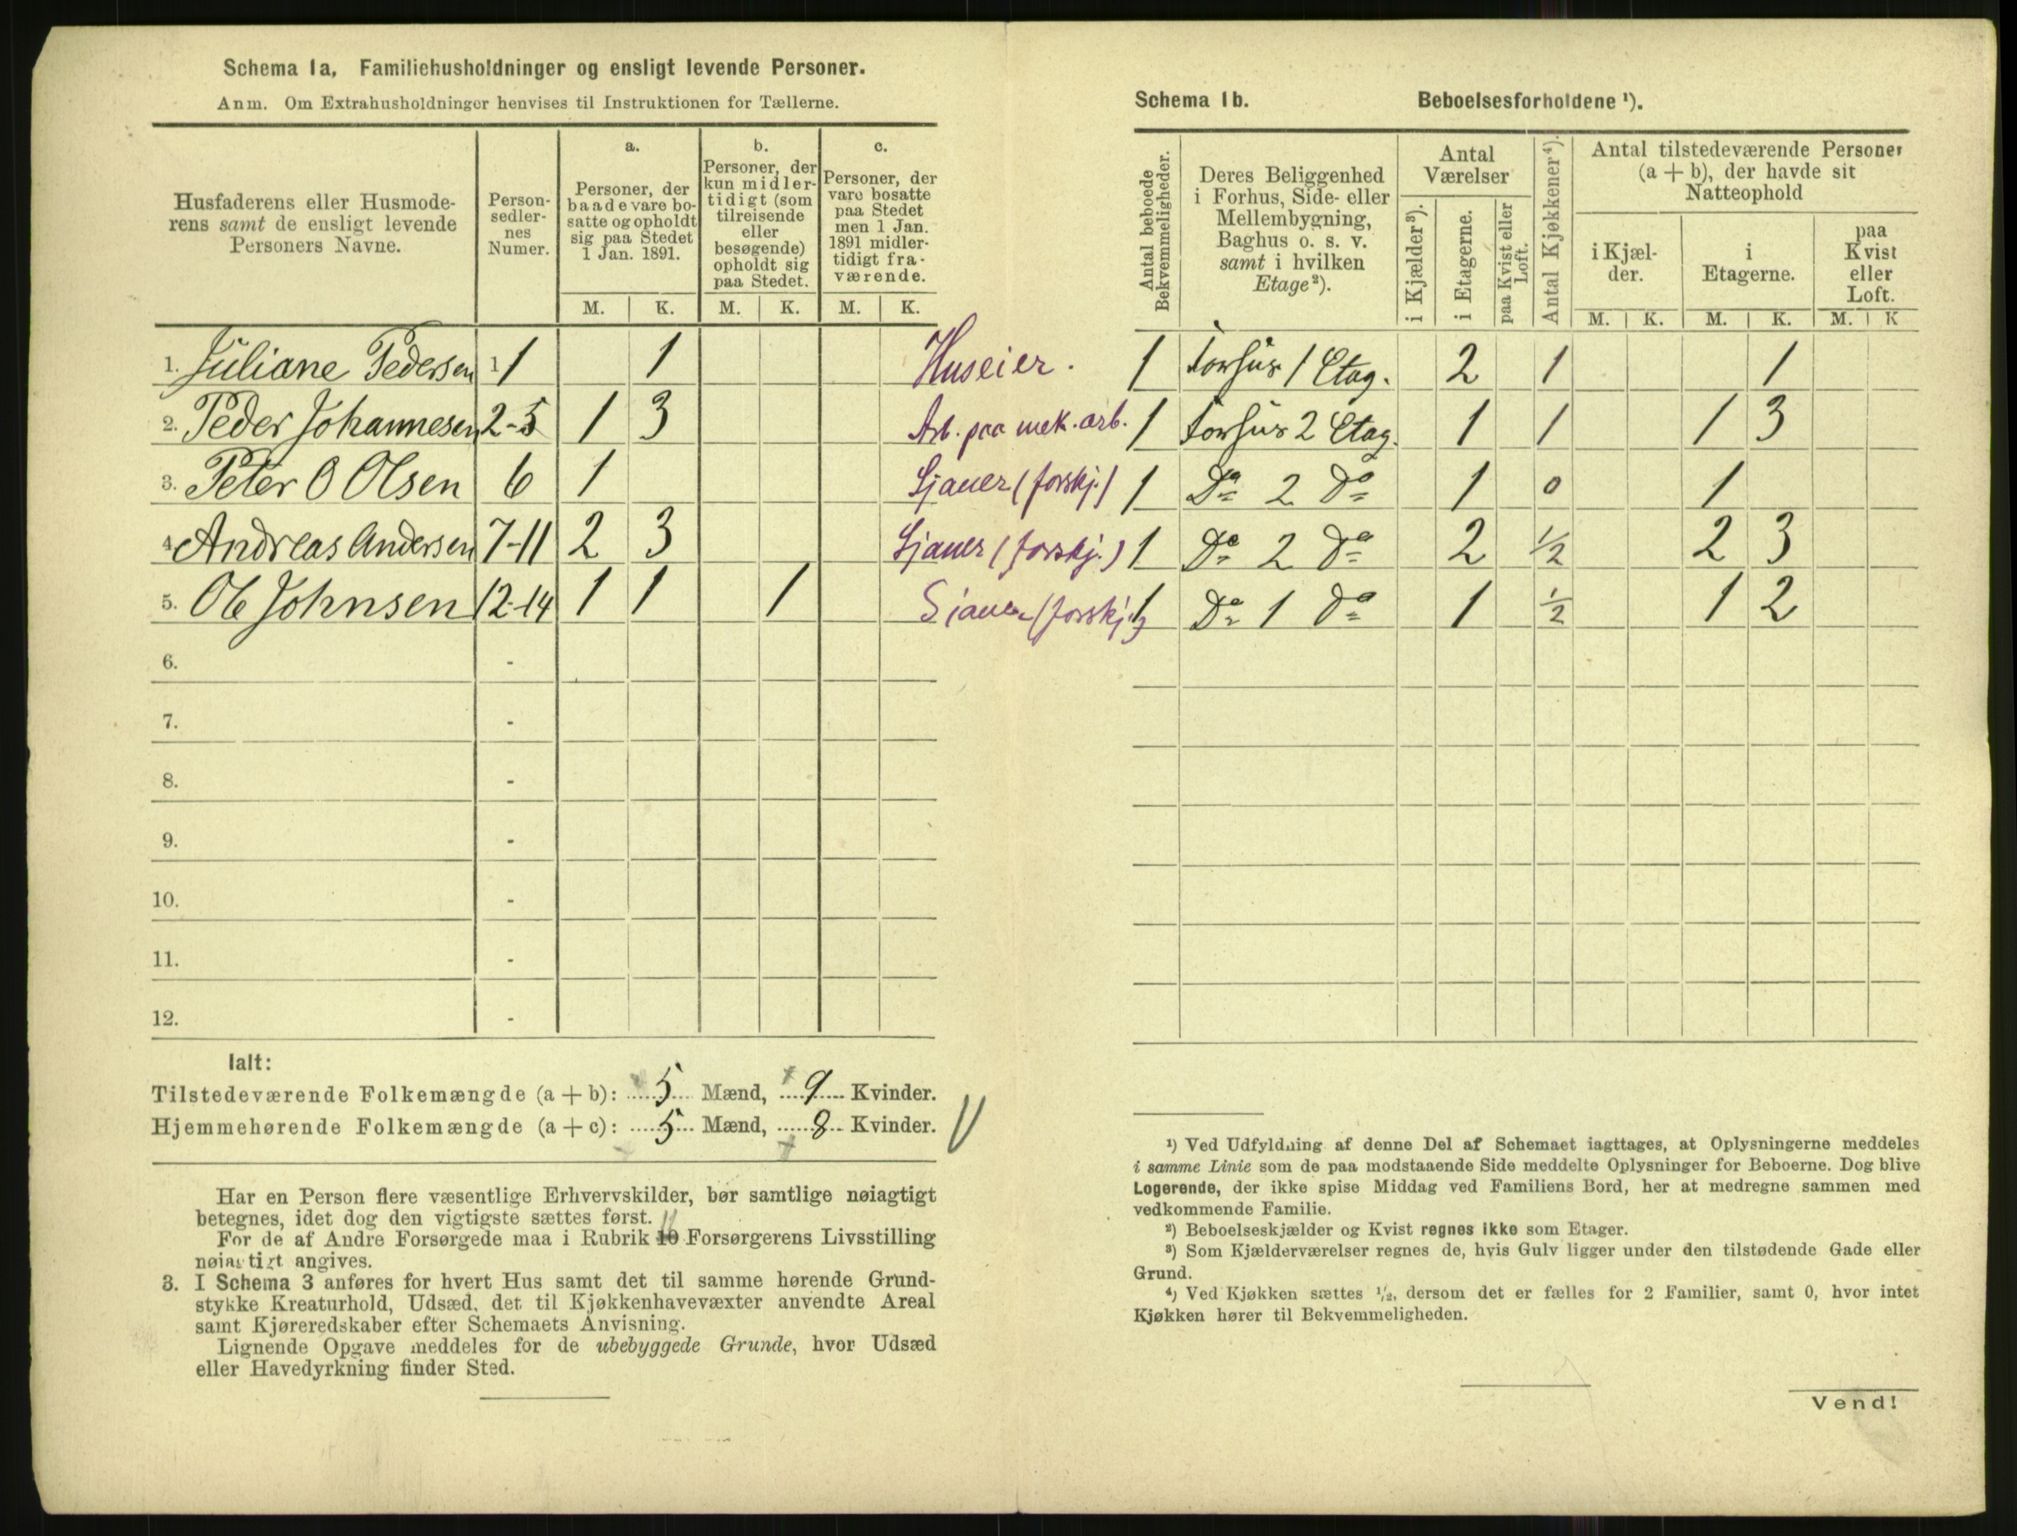 Schema 1a. Familiehusholdninger og ensligt levende Personer.
Anm. Om Extrahusholdninger henvises til Instruktionen for Tællerne.
Husfaderens eller Husmode-
rens samt de ensligt levende
Personers Navne.
Person-
sedler-
nes
Numer.
a.
Personer, der
baade vare bo-
satte og opholdt
sig paa Stedet
1 Jan. 1891.
b.
Personer, der
kun midler-
tidigt (som
tilreisende
eller
besøgende)
opholdt sig
paa Stedet.
c.
Personer, der
vare bosatte
paa Stedet
men 1 Jan.
1891 midler-
tidigt fra-
værende.
M. K. M. K. M. K.
1. Juliane Pedersen 1 1 Huseier.
2. Peder Johannesen 2-5 1 3 Arb. paa mek. arb.
3. Peter O Olsen 6 1 Sjauer (forskj.)
4. Andreas Andersen 7-11 2 3 Sjauer (forskj.)
5. Ole Johnsen 12-14 1 1 1 Sjauer (forskj.)
6. -
7. -
8. -
9. -
10. -
11. -
12. -
Ialt:
Tilstedeværende Folkemængde (a + b): 5 Mænd, 9 Kvinder.
Hjemmehørende Folkemængde (a + c): 5 Mænd, 8 Kvinder.
Har en Person flere væsentlige Erhvervskilder, bør samtlige nøiagtigt
betegnes, idet dog den vigtigste sættes først.
For de af Andre Forsørgede maa i Rubrik 10 11 Forsørgerens Livsstilling
nøiagtigt angives.
3. I Schema 3 anføres for hvert Hus samt det til samme hørende Grund-
stykke Kreaturhold, Udsæd, det til Kjøkkenhavevæxter anvendte Areal
samt Kjøreredskaber efter Schemaets Anvisning.
Lignende Opgave meddeles for de ubebyggede Grunde, hvor Udsæd
eller Havedyrkning finder Sted.
Schema 1b. Beboelsesforholdene ¹).
Antal beboede
Bekvemmeligheder.
Deres Beliggenhed
i Forhus, Side- eller
Mellembygning,
Baghus o. s. v.
samt i hvilken
Etage²).
Antal
Værelser
i Kjælder³).
i Etagerne.
paa Kvist eller
Loft.
Antal Kjøkkener⁴).
Antal tilstedeværende Personer
(a + b), der havde sit
Natteophold
i Kjæl-
der.
i
Etagerne.
paa
Kvist
eller
Loft.
M. K. M. K. M. K
1 Forhus 1 Etag. 2 1 1
1 Forhus 2 Etag. 1 1 1 3
1 Do 2 Do 1 0 1
1 Do 2 Do 2 1/2 2 3
1 Do 1 Do 1 1/2 1 2
¹) Ved Udfyldning af denne Del af Schemaet iagttages, at Oplysningerne meddeles
i samme Linie som de paa modstaaende Side meddelte Oplysninger for Beboerne. Dog blive
Logerende, der ikke spise Middag ved Familiens Bord, her at medregne sammen med
vedkommende Familie.
²) Beboelseskjælder og Kvist regnes ikke som Etager.
³) Som Kjælderværelser regnes de, hvis Gulv ligger under den tilstødende Gade eller
Grund.
⁴) Ved Kjøkken sættes ¹/₂, dersom det er fælles for 2 Familier, samt 0, hvor intet
Kjøkken hører til Bekvemmeligheden.
Vend!